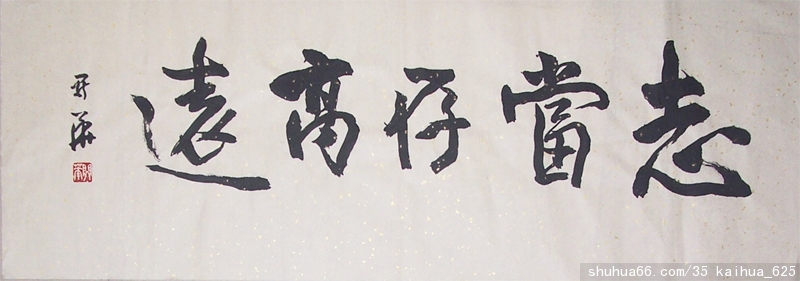 志當存高遠
开華
shuhua66.com/35 kaihua_625